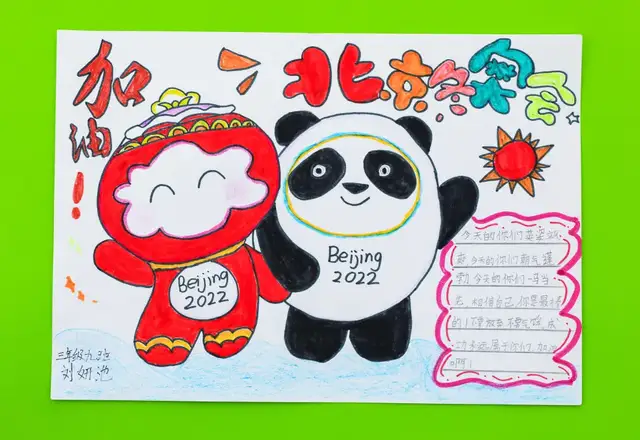 加油!
北京冬奥会
Beijing
2022
Beijing
2022
今天的你们英姿飒
爽今天的你们朝气蓬
勃今天的你们一马当
先,相信自己,你是最棒
的!不要放弃不要气馁,成
功永远属于你们,加油
啊!
三年级九班
刘妍池